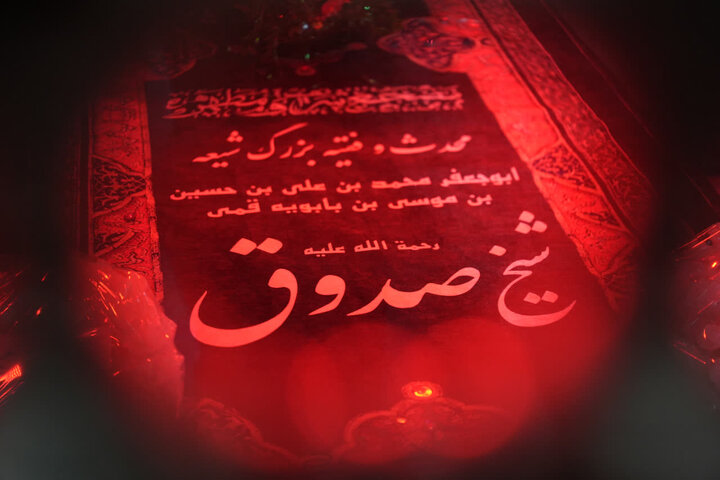 محدث و فقیه بزرگ شیعه
ابوجعفر محمد بن علی بن حسین
بن موسی بن بابویه قمی
رحمة الله علیه
شیخ صدوق